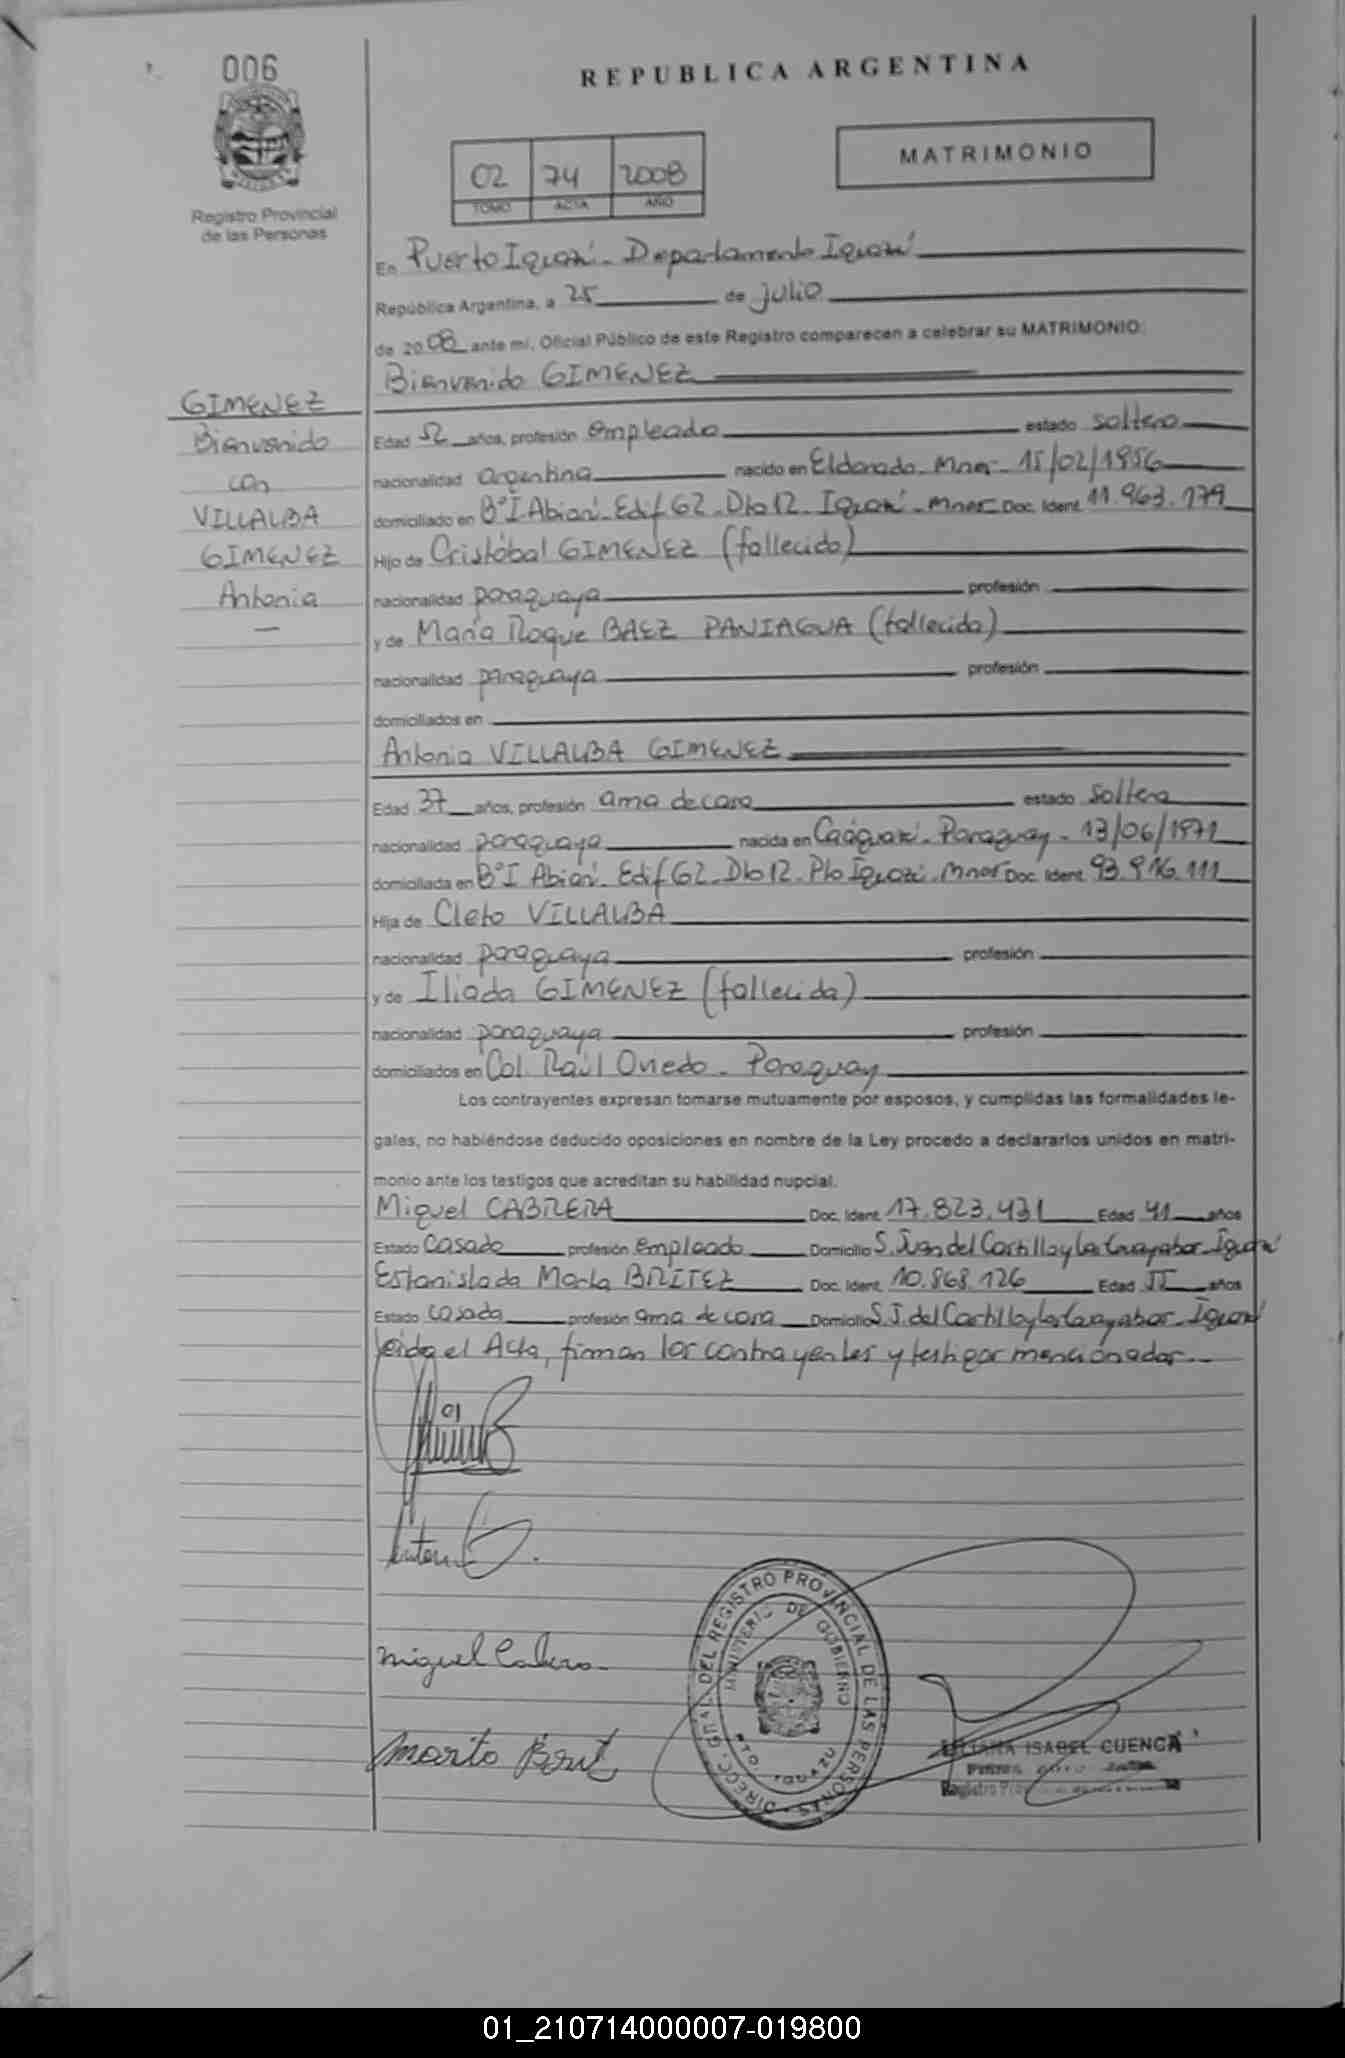 006
REPUBLICA ARGENTINA
MATRIMONIO
02 74 2008
TOMO ACTA AÑO
Registro Provincial
de las Personas
En Puerto Iguazú - Departamento Iguazú
República Argentina, a 25 de julio
de 2008 ante mi, Oficial Público de este Registro comparecen a celebrar su MATRIMONIO:
Bienvenido GIMENEZ
GIMENEZ
Bienvenido
con
VILLALBA
GIMENEZ
Antonia
Edad 52 años, profesión empleado estado soltero
nacionalidad argentina nacido en Eldorado - Mnes - 15/02/1956
domiciliado en B° I. Abiarí - Edif 62 - Dto 12 - Iguazú - Mnes Doc. Ident. 11.963.179
Hijo de Cristóbal GIMENEZ (fallecido)
nacionalidad paraguaya profesión
y de María Roque BAEZ PANIAGUA (fallecida)
nacionalidad paraguaya profesión
domiciliados en
Antonia VILLALBA GIMENEZ
Edad 37 años, profesión ama de casa estado soltera
nacionalidad paraguaya nacida en Caáguazú - Paraguay - 13/06/1971
domiciliada en B° I Abiarí - Edif 62 - Dto 12 - Pto Iguazú - Mnes Doc. Ident. 93.916.111
Hija de Cleto VILLALBA
nacionalidad paraguaya profesión
y de Iliada GIMENEZ (fallecida)
nacionalidad paraguaya profesión
domiciliados en Col. Raúl Oviedo - Paraguay
Los contrayentes expresan tomarse mutuamente por esposos, y cumplidas las formalidades le-
gales, no habiéndose deducido oposiciones en nombre de la Ley procedo a declararlos unidos en matri-
monio ante los testigos que acreditan su habilidad nupcial.
Miguel CABRERA Doc. Ident. 17.823.431 Edad 41 años
Estado casado profesión empleado Domicilio S. Juan del Castillo y Los Guayabos - Iguazú
Estanislada Marta BRITEZ Doc. Ident. 10.868.126 Edad 55 años
Estado casada profesión ama de casa Domicilio S. J. del Castillo y Los Guayabos - Iguazú
Leída el Acta, firman los contrayentes y testigos mencionados.--
Miguel Cabrera
DIREC. GRAL. DEL REGISTRO PROVINCIAL DE LAS PERSONAS
MINISTERIO DE GOBIERNO
PTO. IGUAZU
ISABEL CUENCA
Registro
01_210714000007-019800